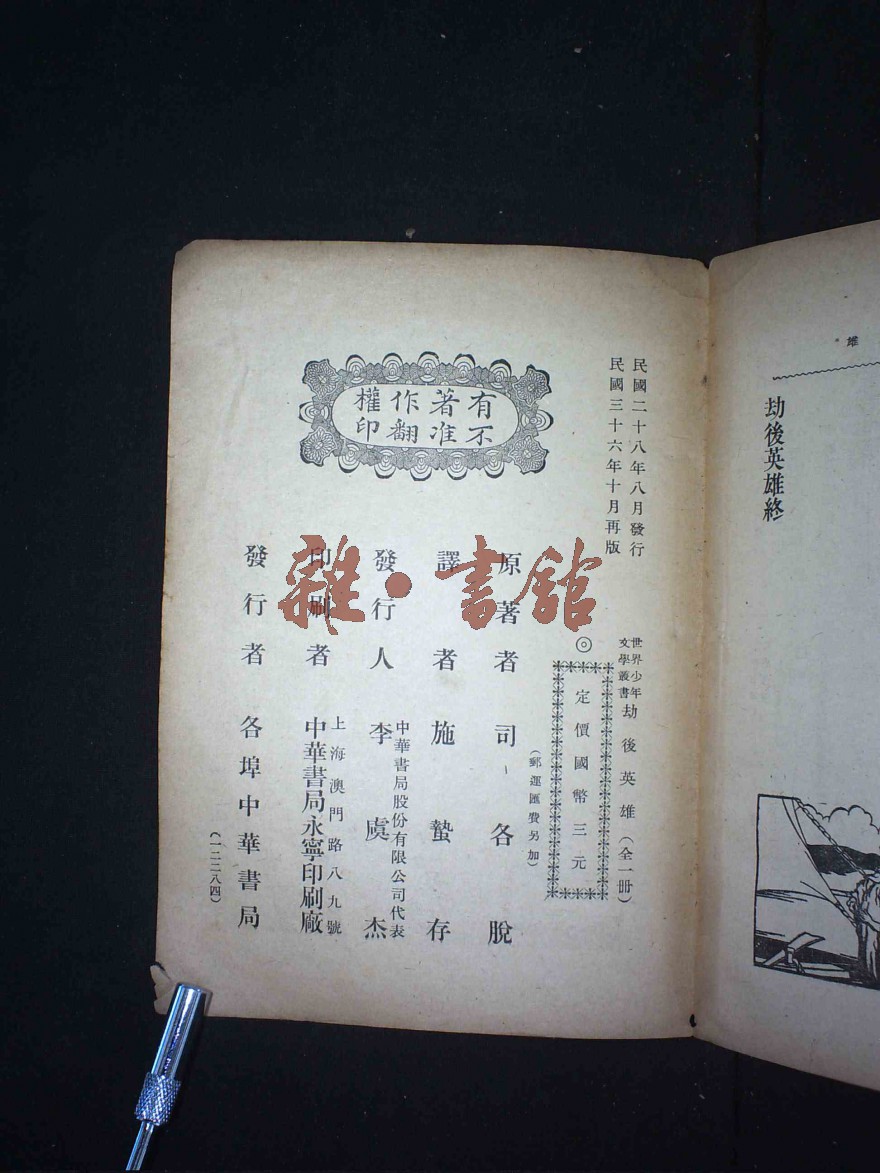 雄
劫後英雄終
民國二十八年八月發行
民國三十六年十月再版
世界少年
文學叢書
劫後英雄(全一冊)
◎定價國幣三元
(郵運匯費另加)
有不著准作翻權印
原著者 司各脫
譯者 施蟄存
發行人 中華書局股份有限公司代表
李虞杰
印刷者 上海澳門路八九號
中華書局永寧印刷廠
發行者 各埠中華書局
(一二二八四)
雜·書館